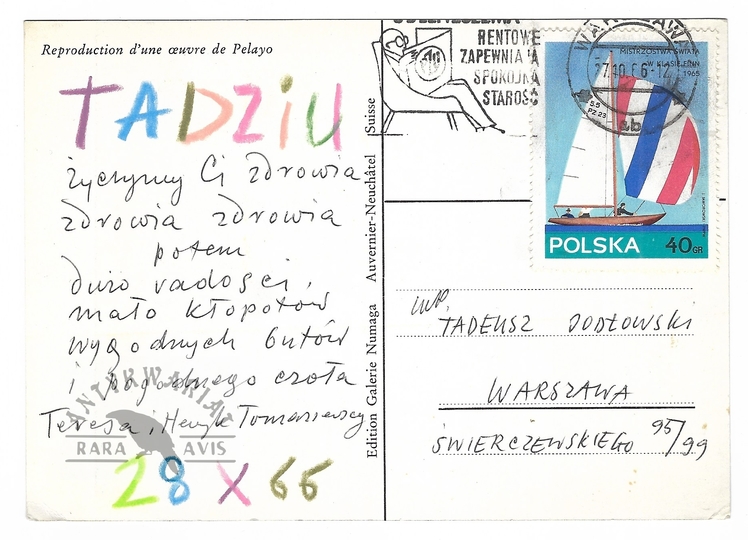 Reproduction d'une œuvre de Pelayo
TADZIU
życzymy Ci zdrowia
zdrowia zdrowia
potem
dużo radości,
mało kłopotów
wygodnych butów
i pogodnego czoła
Teresa, Henryk Tomaszewscy
28 X 66
ANTYKWARIAT
RARA AVIS
Edition Galerie Numaga Auvernier-Neuchâtel Suisse
RENTOWE
ZAPEWNIA
SPOKOJNĄ
STAROŚĆ
WARSZAWA
27.10.66-12
ab
MISTRZOSTWA ŚWIATA
W KLASIE FINN
1965
5.5
PZ 23
POLSKA 40 GR
WP.
TADEUSZ JODŁOWSKI
WARSZAWA
ŚWIERCZEWSKIEGO 95/99